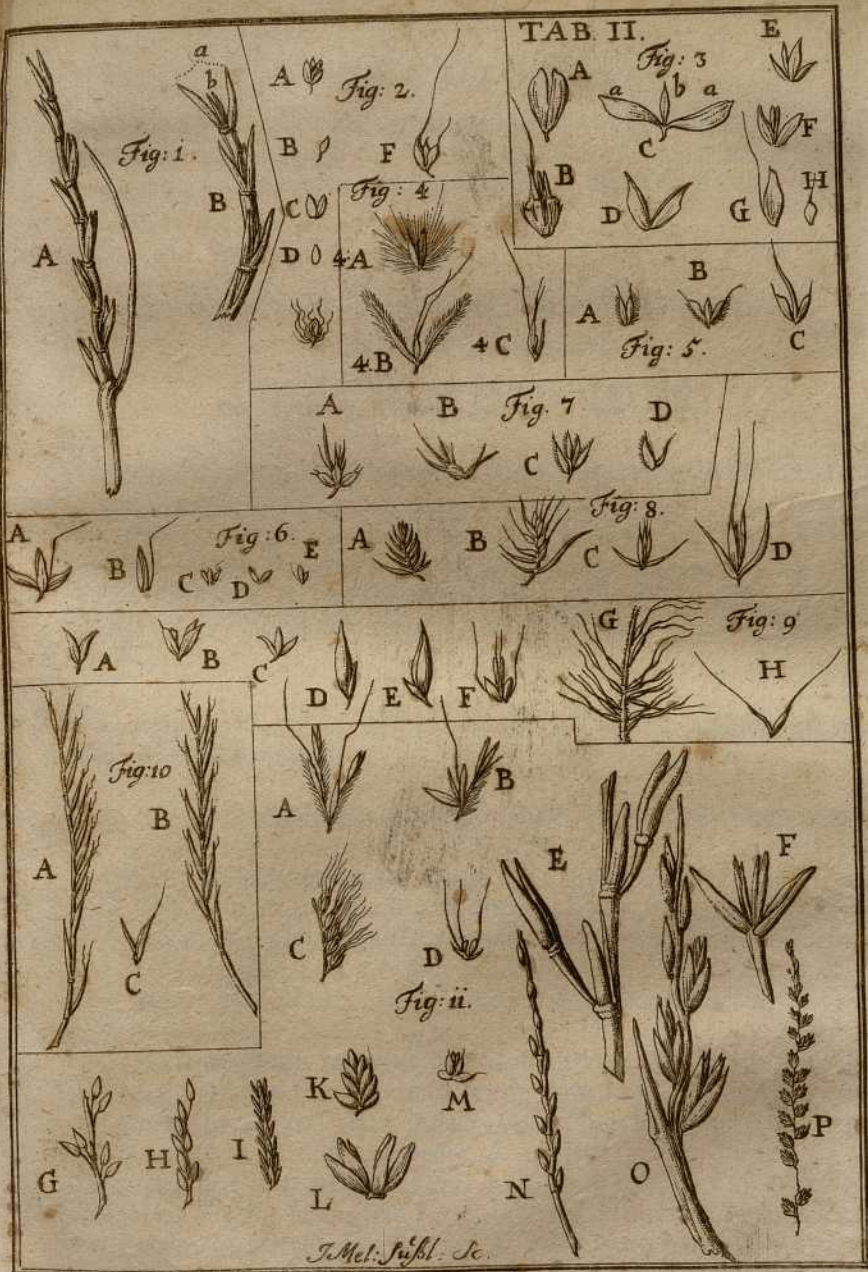 TAB II.
Fig: 1.
a
b
A
B
Fig: 2.
A
B
C
D
F
Fig: 3
A
B
a
b
a
C
D
E
F
G
H
Fig: 4
4:A
4.B
4 C
Fig: 5.
A
B
C
Fig. 7
A
B
C
D
Fig: 6.
A
B
C
D
E
Fig: 8.
A
B
C
D
Fig: 9
A
B
C
D
E
F
G
H
Fig: 10
A
B
C
Fig: 11.
A
B
C
D
E
F
G
H
I
K
L
M
N
O
P
J Mel: Füßl: Sc.